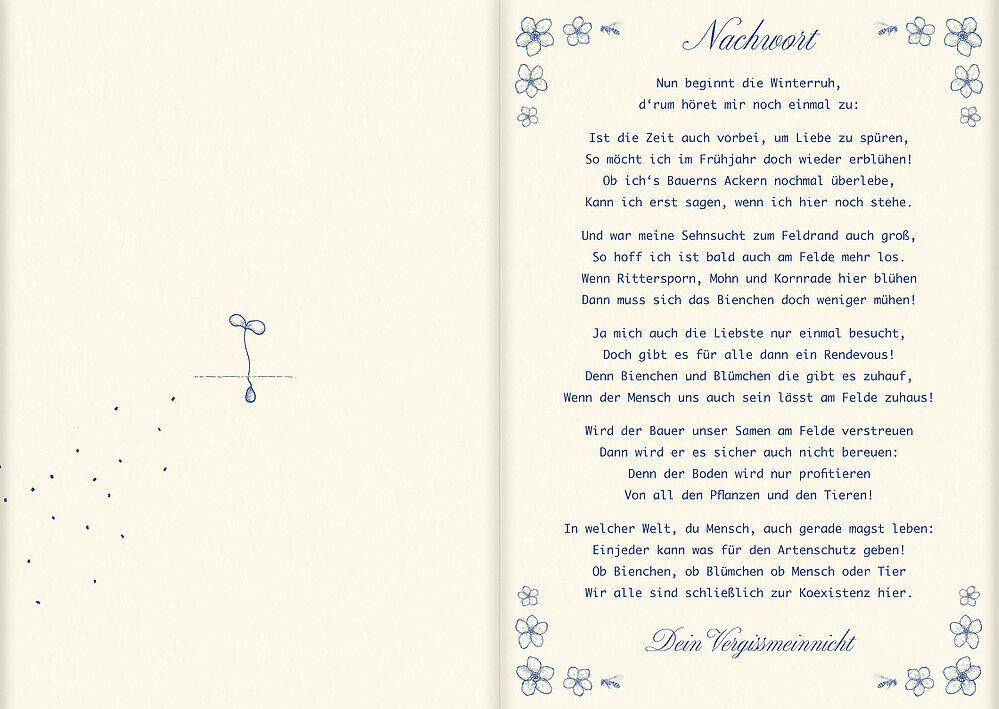 Nachwort
Nun beginnt die Winterruh,
d‘rum höret mir noch einmal zu:
Ist die Zeit auch vorbei, um Liebe zu spüren,
So möcht ich im Frühjahr doch wieder erblühen!
Ob ich‘s Bauerns Ackern nochmal überlebe,
Kann ich erst sagen, wenn ich hier noch stehe.
Und war meine Sehnsucht zum Feldrand auch groß,
So hoff ich ist bald auch am Felde mehr los.
Wenn Rittersporn, Mohn und Kornrade hier blühen
Dann muss sich das Bienchen doch weniger mühen!
Ja mich auch die Liebste nur einmal besucht,
Doch gibt es für alle dann ein Rendevous!
Denn Bienchen und Blümchen die gibt es zuhauf,
Wenn der Mensch uns auch sein lässt am Felde zuhaus!
Wird der Bauer unser Samen am Felde verstreuen
Dann wird er es sicher auch nicht bereuen:
Denn der Boden wird nur profitieren
Von all den Pflanzen und den Tieren!
In welcher Welt, du Mensch, auch gerade magst leben:
Einjeder kann was für den Artenschutz geben!
Ob Bienchen, ob Blümchen ob Mensch oder Tier
Wir alle sind schließlich zur Koexistenz hier.
Dein Vergissmeinnicht